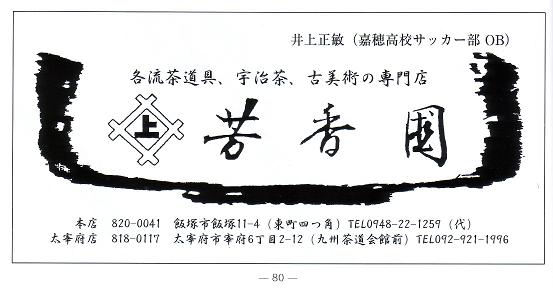 井上正敏（嘉穂高校サッカー部 OB）
各流茶道具、宇治茶、古美術の専門店
上 芳香園
本店 820-0041 飯塚市飯塚11-4（東町四つ角）TEL0948-22-1259（代）
太宰府店 818-0117 太宰府市宰府6丁目2-12（九州茶道会館前）TEL092-921-1996
― 80 ―